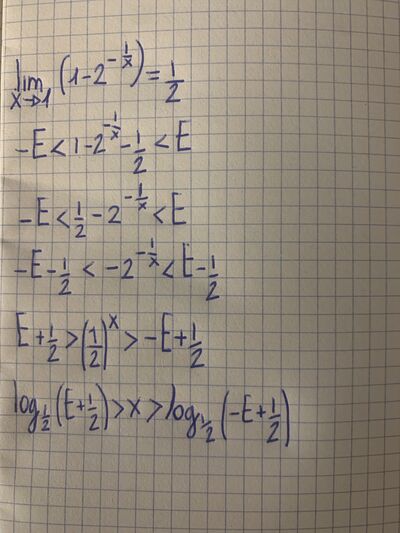 lim x→1 (1-2^(-1/x)) = 1/2
-E < 1-2^(-1/x) - 1/2 < E
-E < 1/2 - 2^(-1/x) < E
-E - 1/2 < -2^(-1/x) < E - 1/2
E + 1/2 > (1/2)^x > -E + 1/2
log_(1/2) (E + 1/2) > x > log_(1/2) (-E + 1/2)